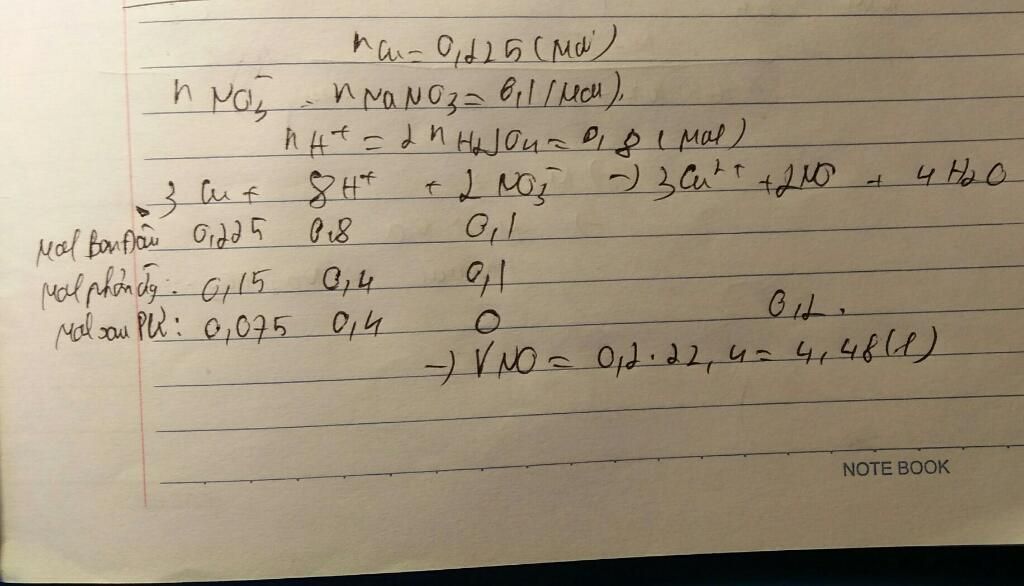 nCu = 0,225 (mol)
n NO3⁻ = n NaNO3 = 0,1 (mol).
nH⁺ = 2nH2SO4 = 0,8 (mol)
3 Cu + 8H⁺ + 2 NO3⁻ → 3Cu²⁺ + 2NO + 4H2O
Mol Ban đầu 0,225 0,8 0,1
Mol phản ứg: 0,15 0,4 0,1
Mol sau PƯ: 0,075 0,4 0 0,2.
→ VNO = 0,2.22,4 = 4,48(l)
NOTE BOOK